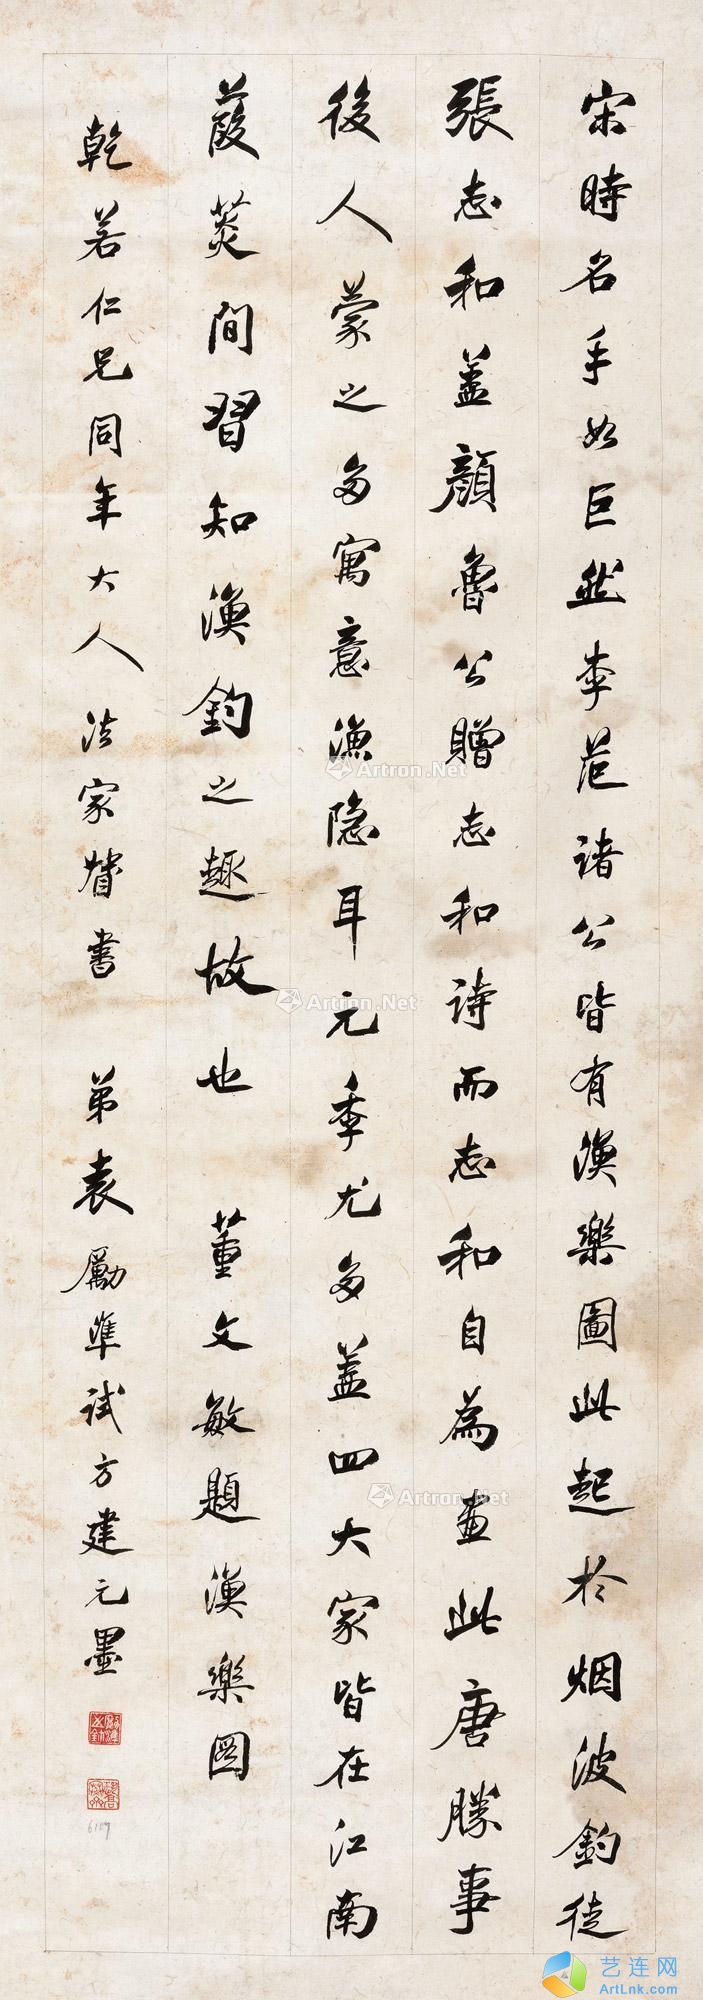 宋時名手如巨然李范諸公皆有漁樂圖此起於烟波釣徒
張志和蓋顏魯公贈志和詩而志和自為畫此唐勝事
後人蒙之多寓意漁隱耳元季尤多蓋四大家皆在江南
葭菼間習知漁釣之趣故也 董文敏題漁樂圖
乾若仁兄同年大人法家督書 弟袁勵準試方建元墨
6109
Artron.Net
Artron.Net
Artron.Net
艺连网
ArtLnk.com